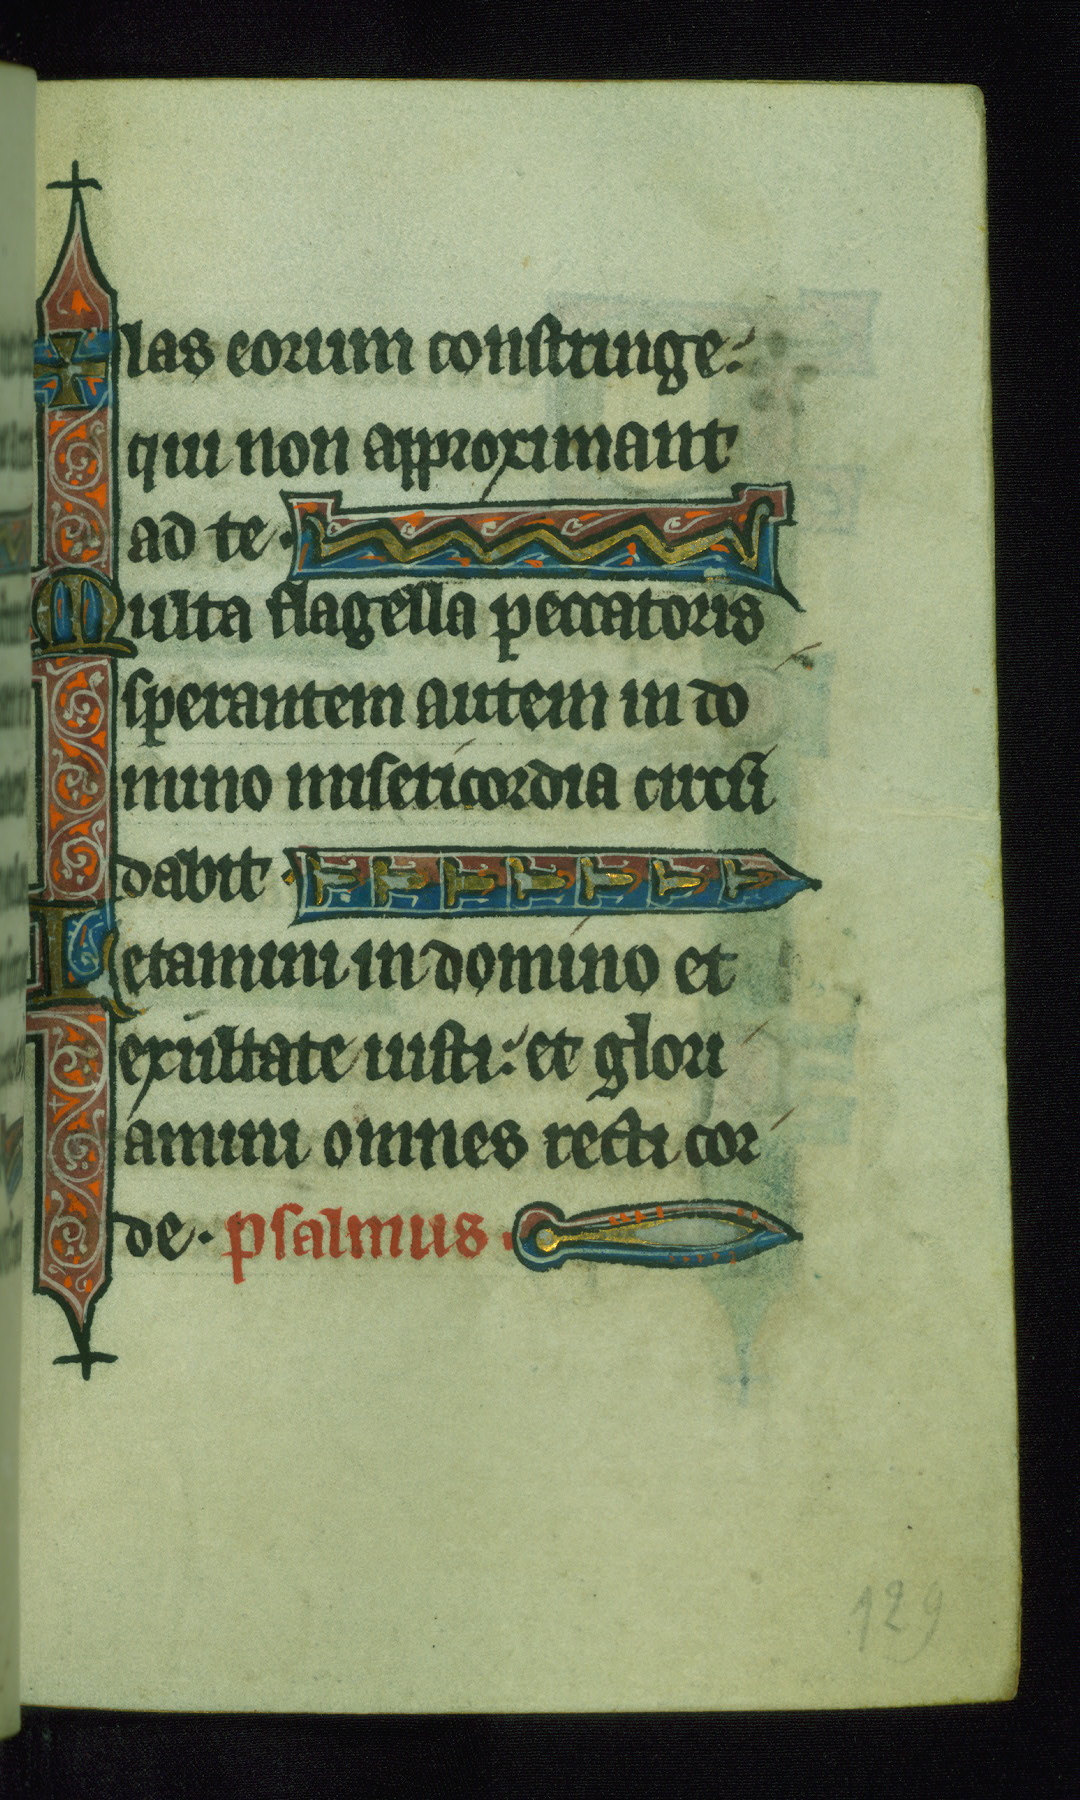 las eorum constringe:
qui non approximant
ad te.
Multa flagella peccatoris
sperantem autem in do
mino misericordia circū
dabit.
Letamini in domino et
exultate iusti: et glori
amini omnes recti cor
de. psalmus.
129